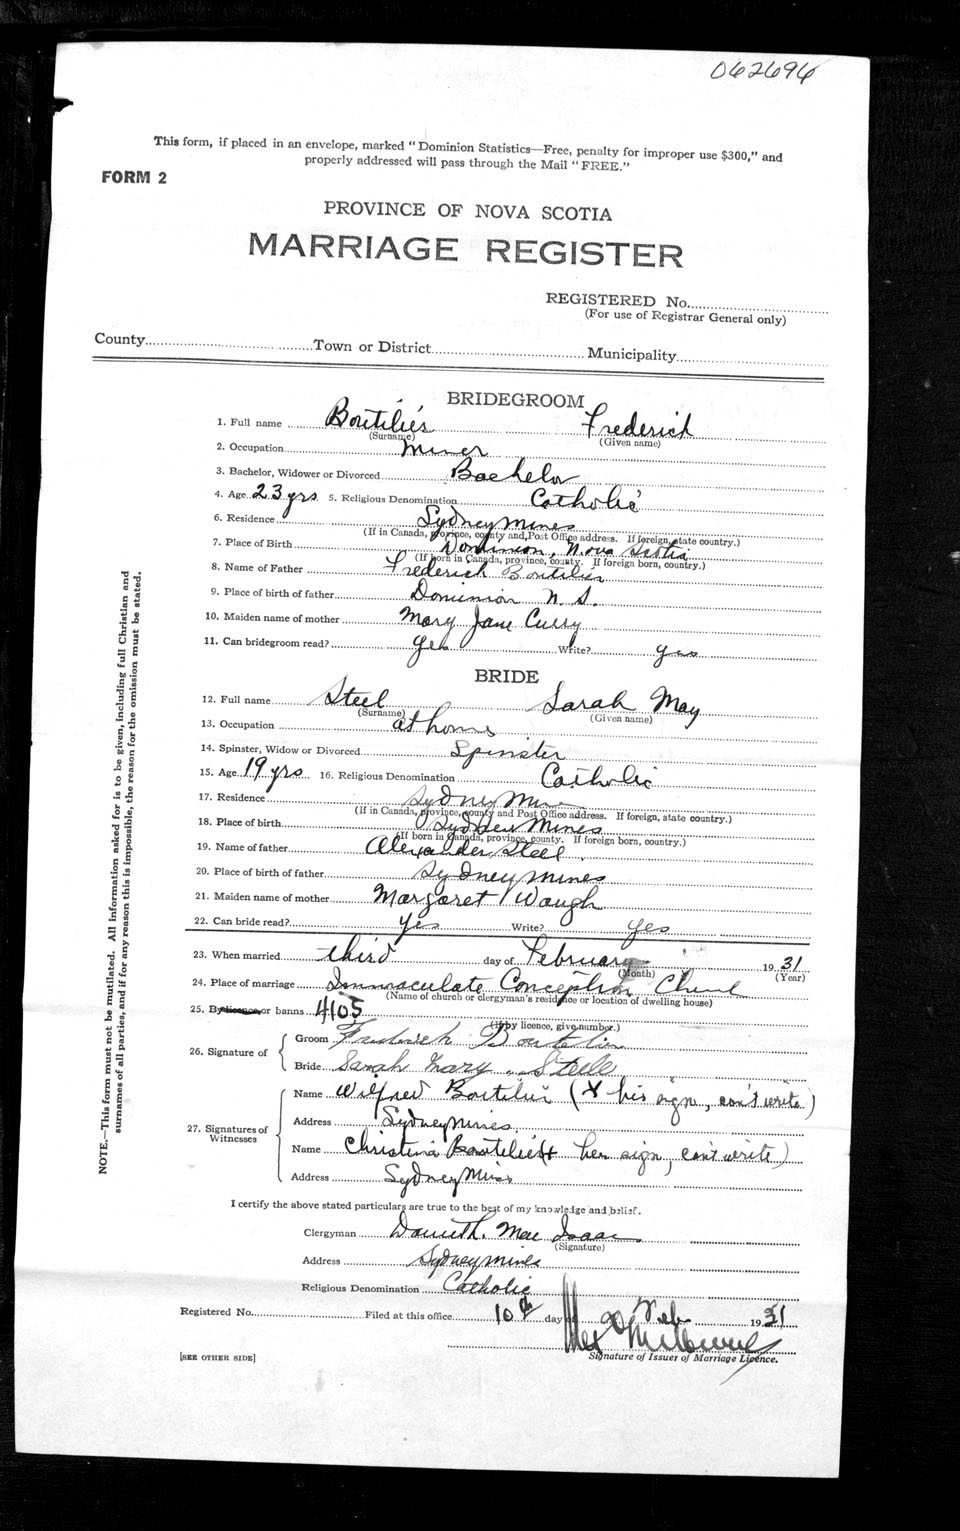 062696
This form, if placed in an envelope, marked "Dominion Statistics—Free, penalty for improper use $300," and
properly addressed will pass through the Mail "FREE."
FORM 2
PROVINCE OF NOVA SCOTIA
MARRIAGE REGISTER
REGISTERED No.
(For use of Registrar General only)
County Town or District Municipality
BRIDEGROOM
1. Full name Boutilier Frederick
(Surname) (Given name)
2. Occupation Miner
3. Bachelor, Widower or Divorced Bachelor
4. Age 23 yrs 5. Religious Denomination Catholic
6. Residence Sydney Mines
(If in Canada, province, county and Post Office address. If foreign, state country.)
7. Place of Birth Dominion, Nova Scotia
(If born in Canada, province, county. If foreign born, country.)
8. Name of Father Frederick Boutilier
9. Place of birth of father Dominion N.S.
10. Maiden name of mother Mary Jane Curry
11. Can bridegroom read? yes Write? yes
BRIDE
12. Full name Steel Sarah May
(Surname) (Given name)
13. Occupation at home
14. Spinster, Widow or Divorced Spinster
15. Age 19 yrs 16. Religious Denomination Catholic
17. Residence Sydney Mines
(If in Canada, province, county and Post Office address. If foreign, state country.)
18. Place of birth Sydney Mines
(If born in Canada, province, county. If foreign born, country.)
19. Name of father Alexander Steel
20. Place of birth of father Sydney Mines
21. Maiden name of mother Margaret Waugh
22. Can bride read? yes Write? yes
23. When married third day of February 1931
(Month) (Year)
24. Place of marriage Immaculate Conception Church
(Name of church or clergyman's residence or location of dwelling house)
25. By licence or banns 4105
(If by licence, give number.)
26. Signature of Groom Frederick Boutilier
Bride Sarah Mary Steele
27. Signatures of Witnesses Name Wilfred Boutilier (X his sign, can't write)
Address Sydney Mines
Name Christina Boutilier (X her sign, can't write)
Address Sydney Mines
I certify the above stated particulars are true to the best of my knowledge and belief.
Clergyman Mac Isaac
(Signature)
Address Sydney Mines
Religious Denomination Catholic
Registered No. Filed at this office 10th day of Feb 1931
Signature of Issuer of Marriage Licence.
[SEE OTHER SIDE]
NOTE.—This form must not be mutilated. All information asked for is to be given, including full Christian and
surnames of all parties, and if for any reason this is impossible, the reason for the omission must be stated.